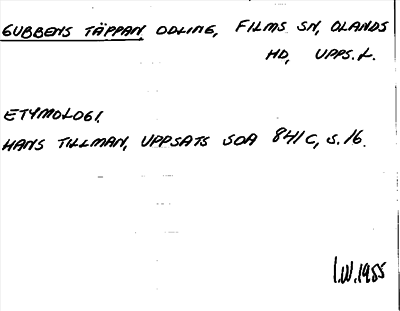 GUBBENS TÄPPAN ODLING, FILMS SN, OLANDS
HD, UPPS.L.
ETYMOLOGI.
HANS TILLMAN, UPPSATS SOA 841C, S.16.
I.W.1985